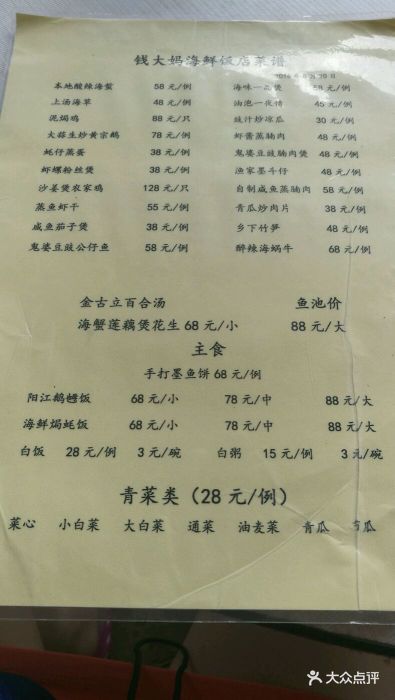 钱大妈海鲜饭店菜谱
本地酸辣海蜇 58 元/例 海味一品煲 58 元/例
上汤海草 48 元/例 油泡一夜情 45 元/例
泥焗鸡 88 元/只 豉汁炒凉瓜 30 元/例
大蒜生炒黄宗鹅 78 元/例 虾酱蒸腩肉 48 元/例
蚝仔蒸蛋 38 元/例 鬼婆豆豉腩肉煲 48 元/例
虾螺粉丝煲 38 元/例 渔家墨斗仔 48 元/例
沙姜煲农家鸡 128 元/只 自制咸鱼蒸腩肉 58 元/例
蒸鱼虾干 55 元/例 青瓜炒肉片 38 元/例
咸鱼茄子煲 38 元/例 乡下竹笋 48 元/例
鬼婆豆豉公仔鱼 58 元/例 醉辣海蜗牛 68 元/例
金古立百合汤 鱼池价
海蟹莲藕煲花生 68 元/小 88 元/大
主食
手打墨鱼饼 68 元/例
阳江鹅乸饭 68 元/小 78 元/中 88 元/大
海鲜焗蚝饭 68 元/小 78 元/中 88 元/大
白饭 28 元/例 3 元/碗 白粥 15 元/例 3 元/碗
青菜类（28 元/例）
菜心 小白菜 大白菜 通菜 油麦菜 青瓜 节瓜
大众点评